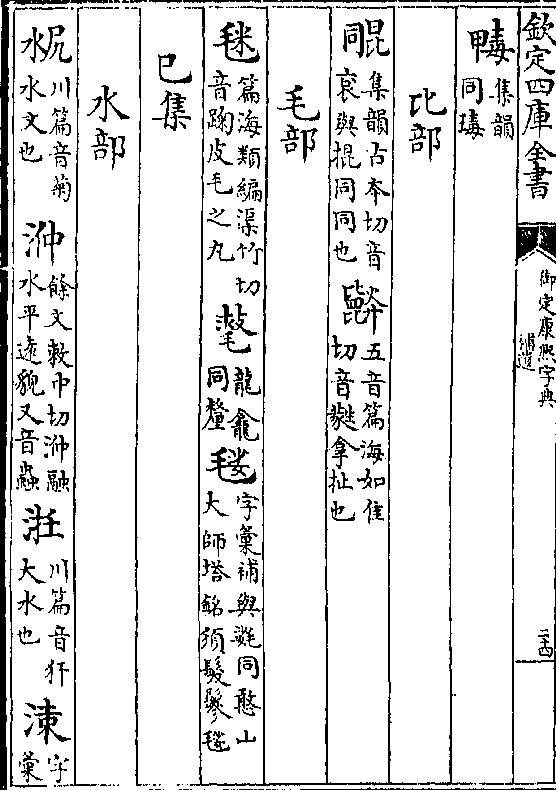 欽定四庫全書
御定康熙字典
補遺
二十四
集韻同瑇
比部
集韻古本切音袞與掍同同也
五音篇海如隹切音甤拿扯也
毛部
毩 篇海類編渠竹切音踘皮毛之丸
龍龕同氂
字彙補與氈同憨山大師塔銘須髮鬖毿
巳集
水部
川篇音菊水文也
浺 餘文敕巾切浺融水平遠貌又音蟲
川篇音犴大水也
涷 字彙